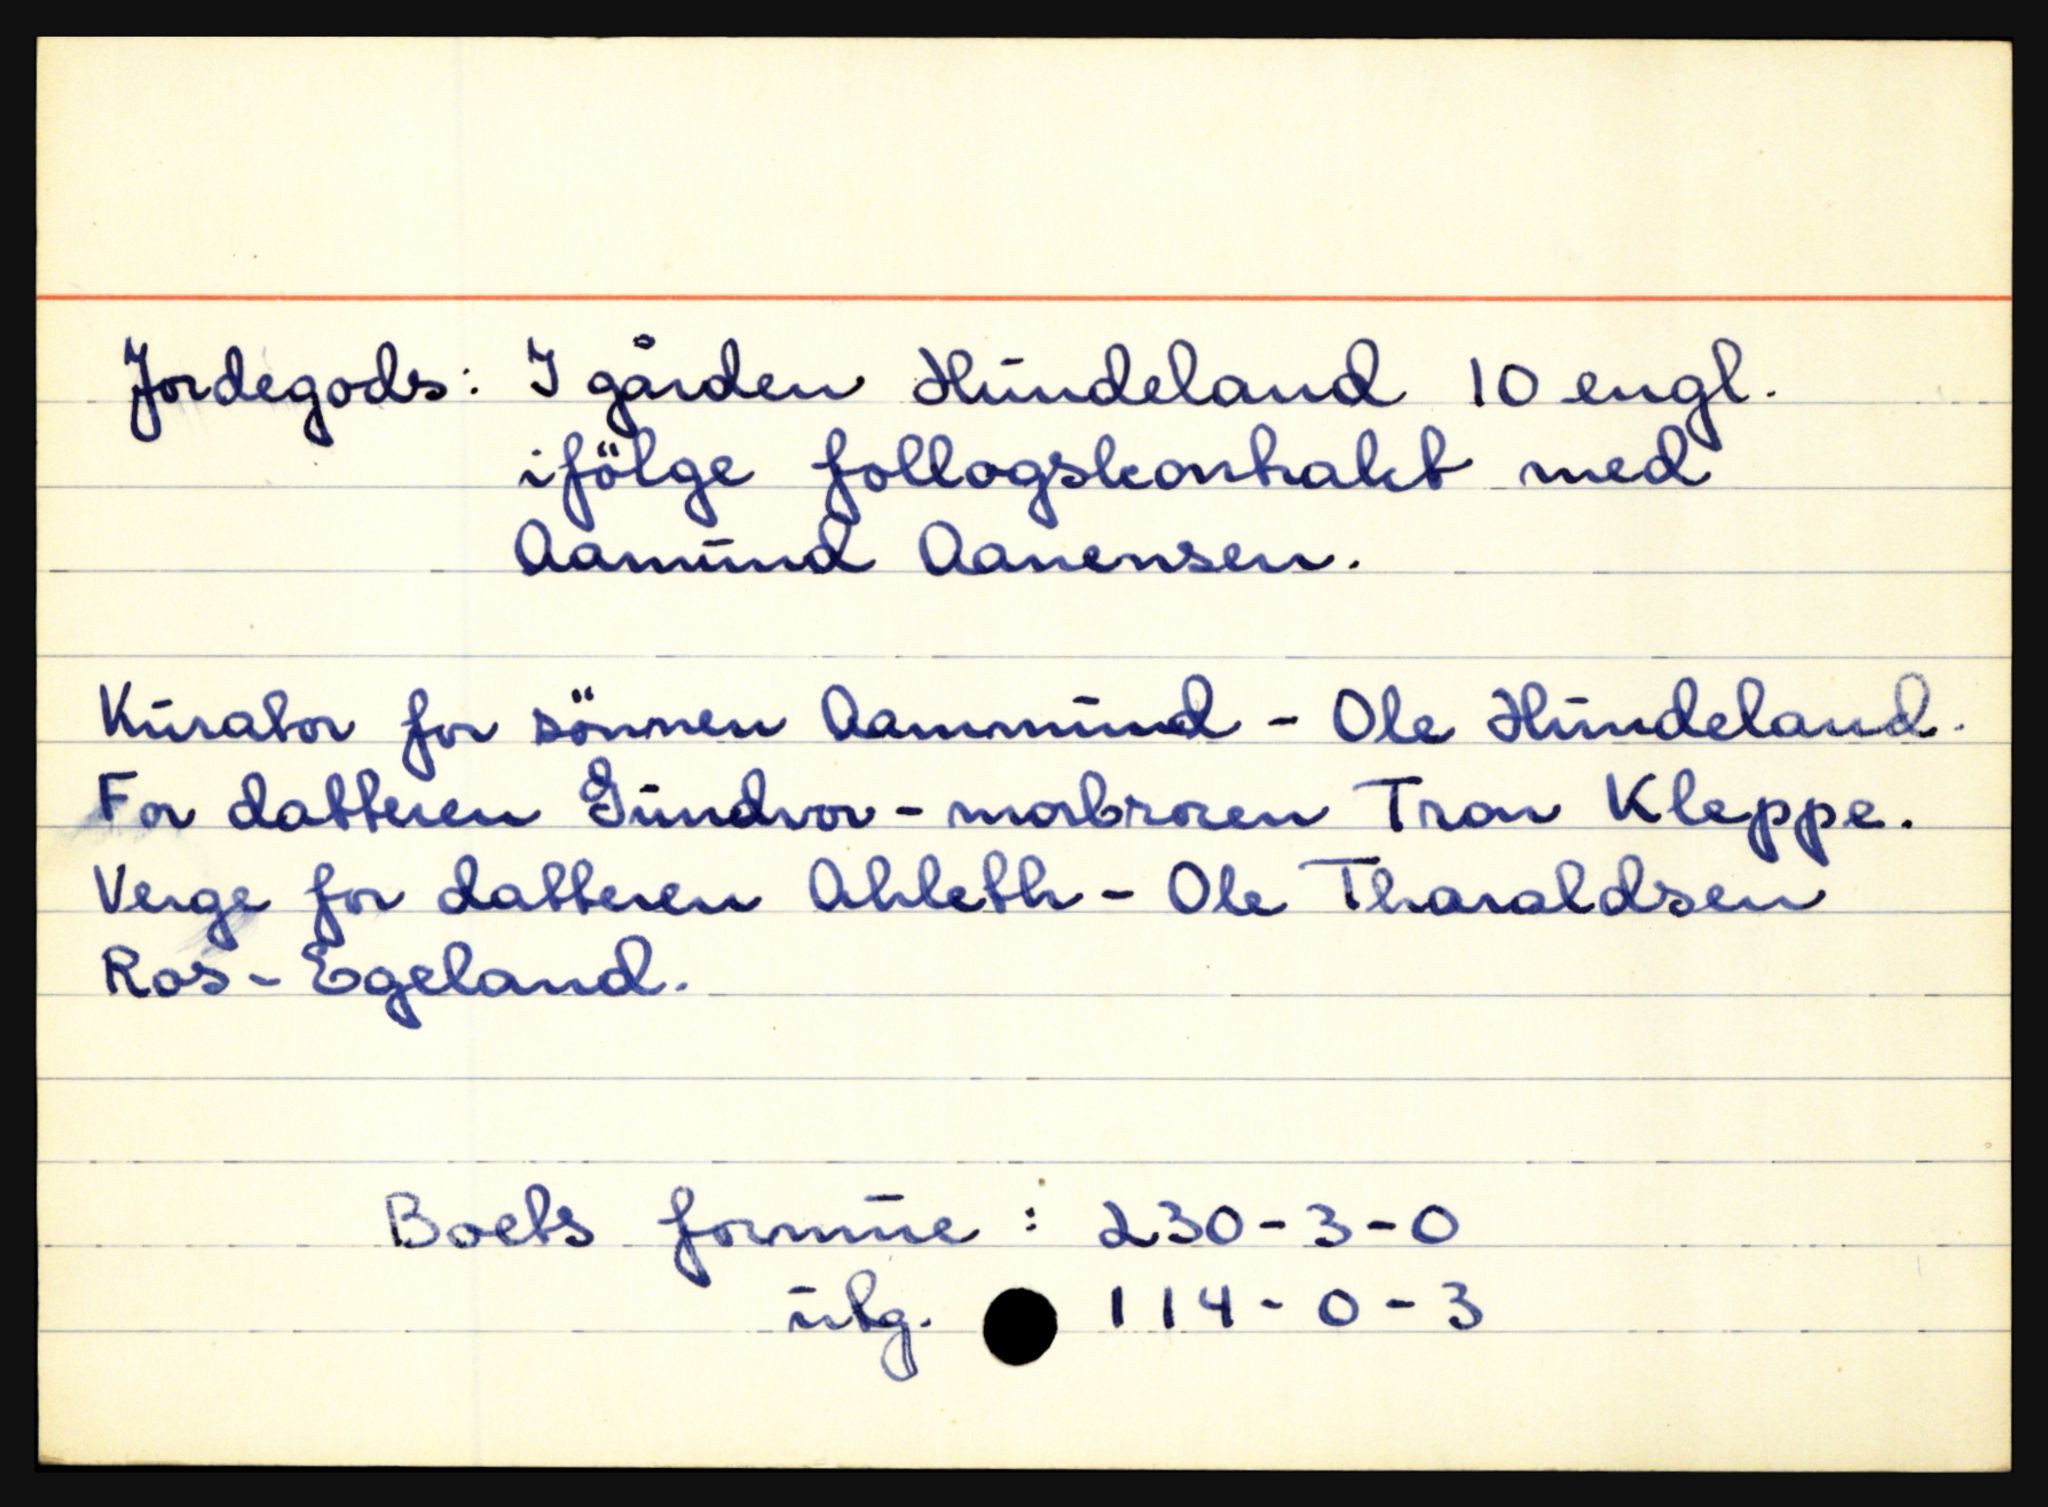 Jordegods: I gården Hundeland 10 engl.
ifölge follogskontrakt med
Aamund Aanensen.
Kurator for sönnen Aammund - Ole Hundeland.
For datteren Gundvor - morbroren Tron Kleppe.
Verge for datteren Ahleth - Ole Tharaldsen
Ros - Egeland.
Boets formue : 230-3-0
utg. 114-0-3